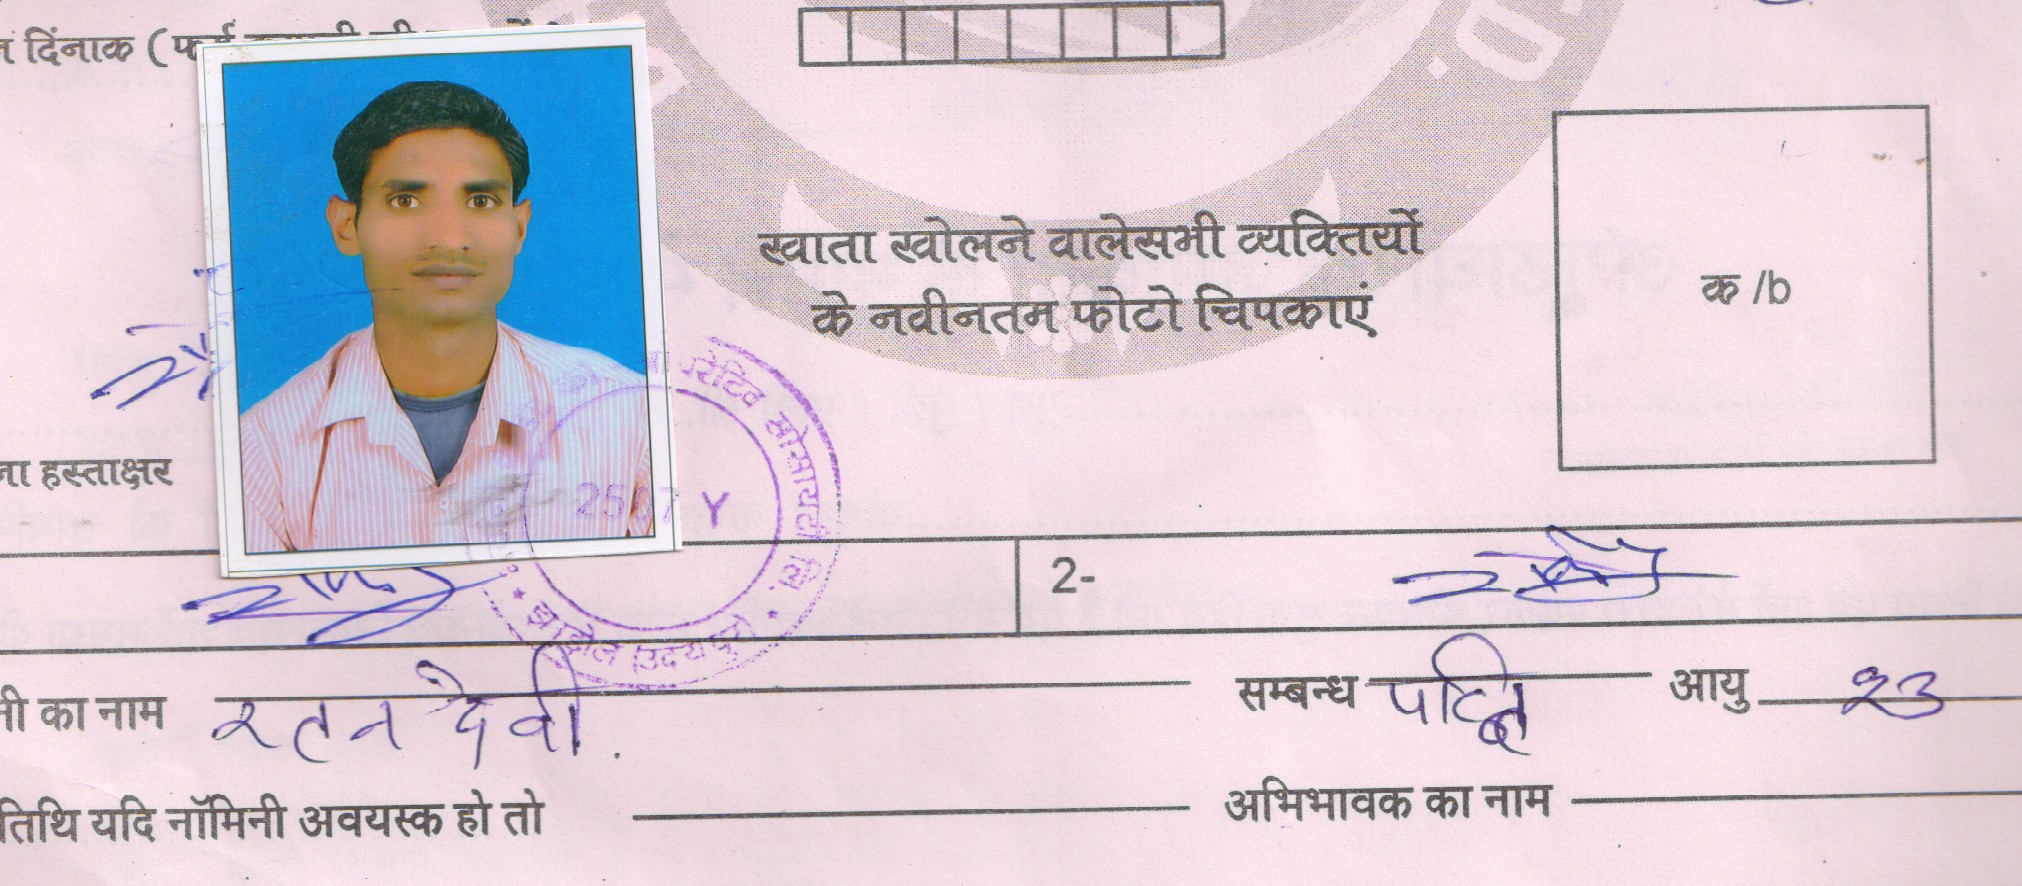 दिंनाक (
खाता खोलने वालेसभी व्यक्तियों
के नवीनतम फोटो चिपकाएं
क /b
हस्ताक्षर
रेटिव सोसायटी लि.
2507 Y
2-
नी का नाम रतन देवी. सम्बन्ध पत्नि आयु 23
तिथि यदि नॉमिनी अवयस्क हो तो अभिभावक का नाम